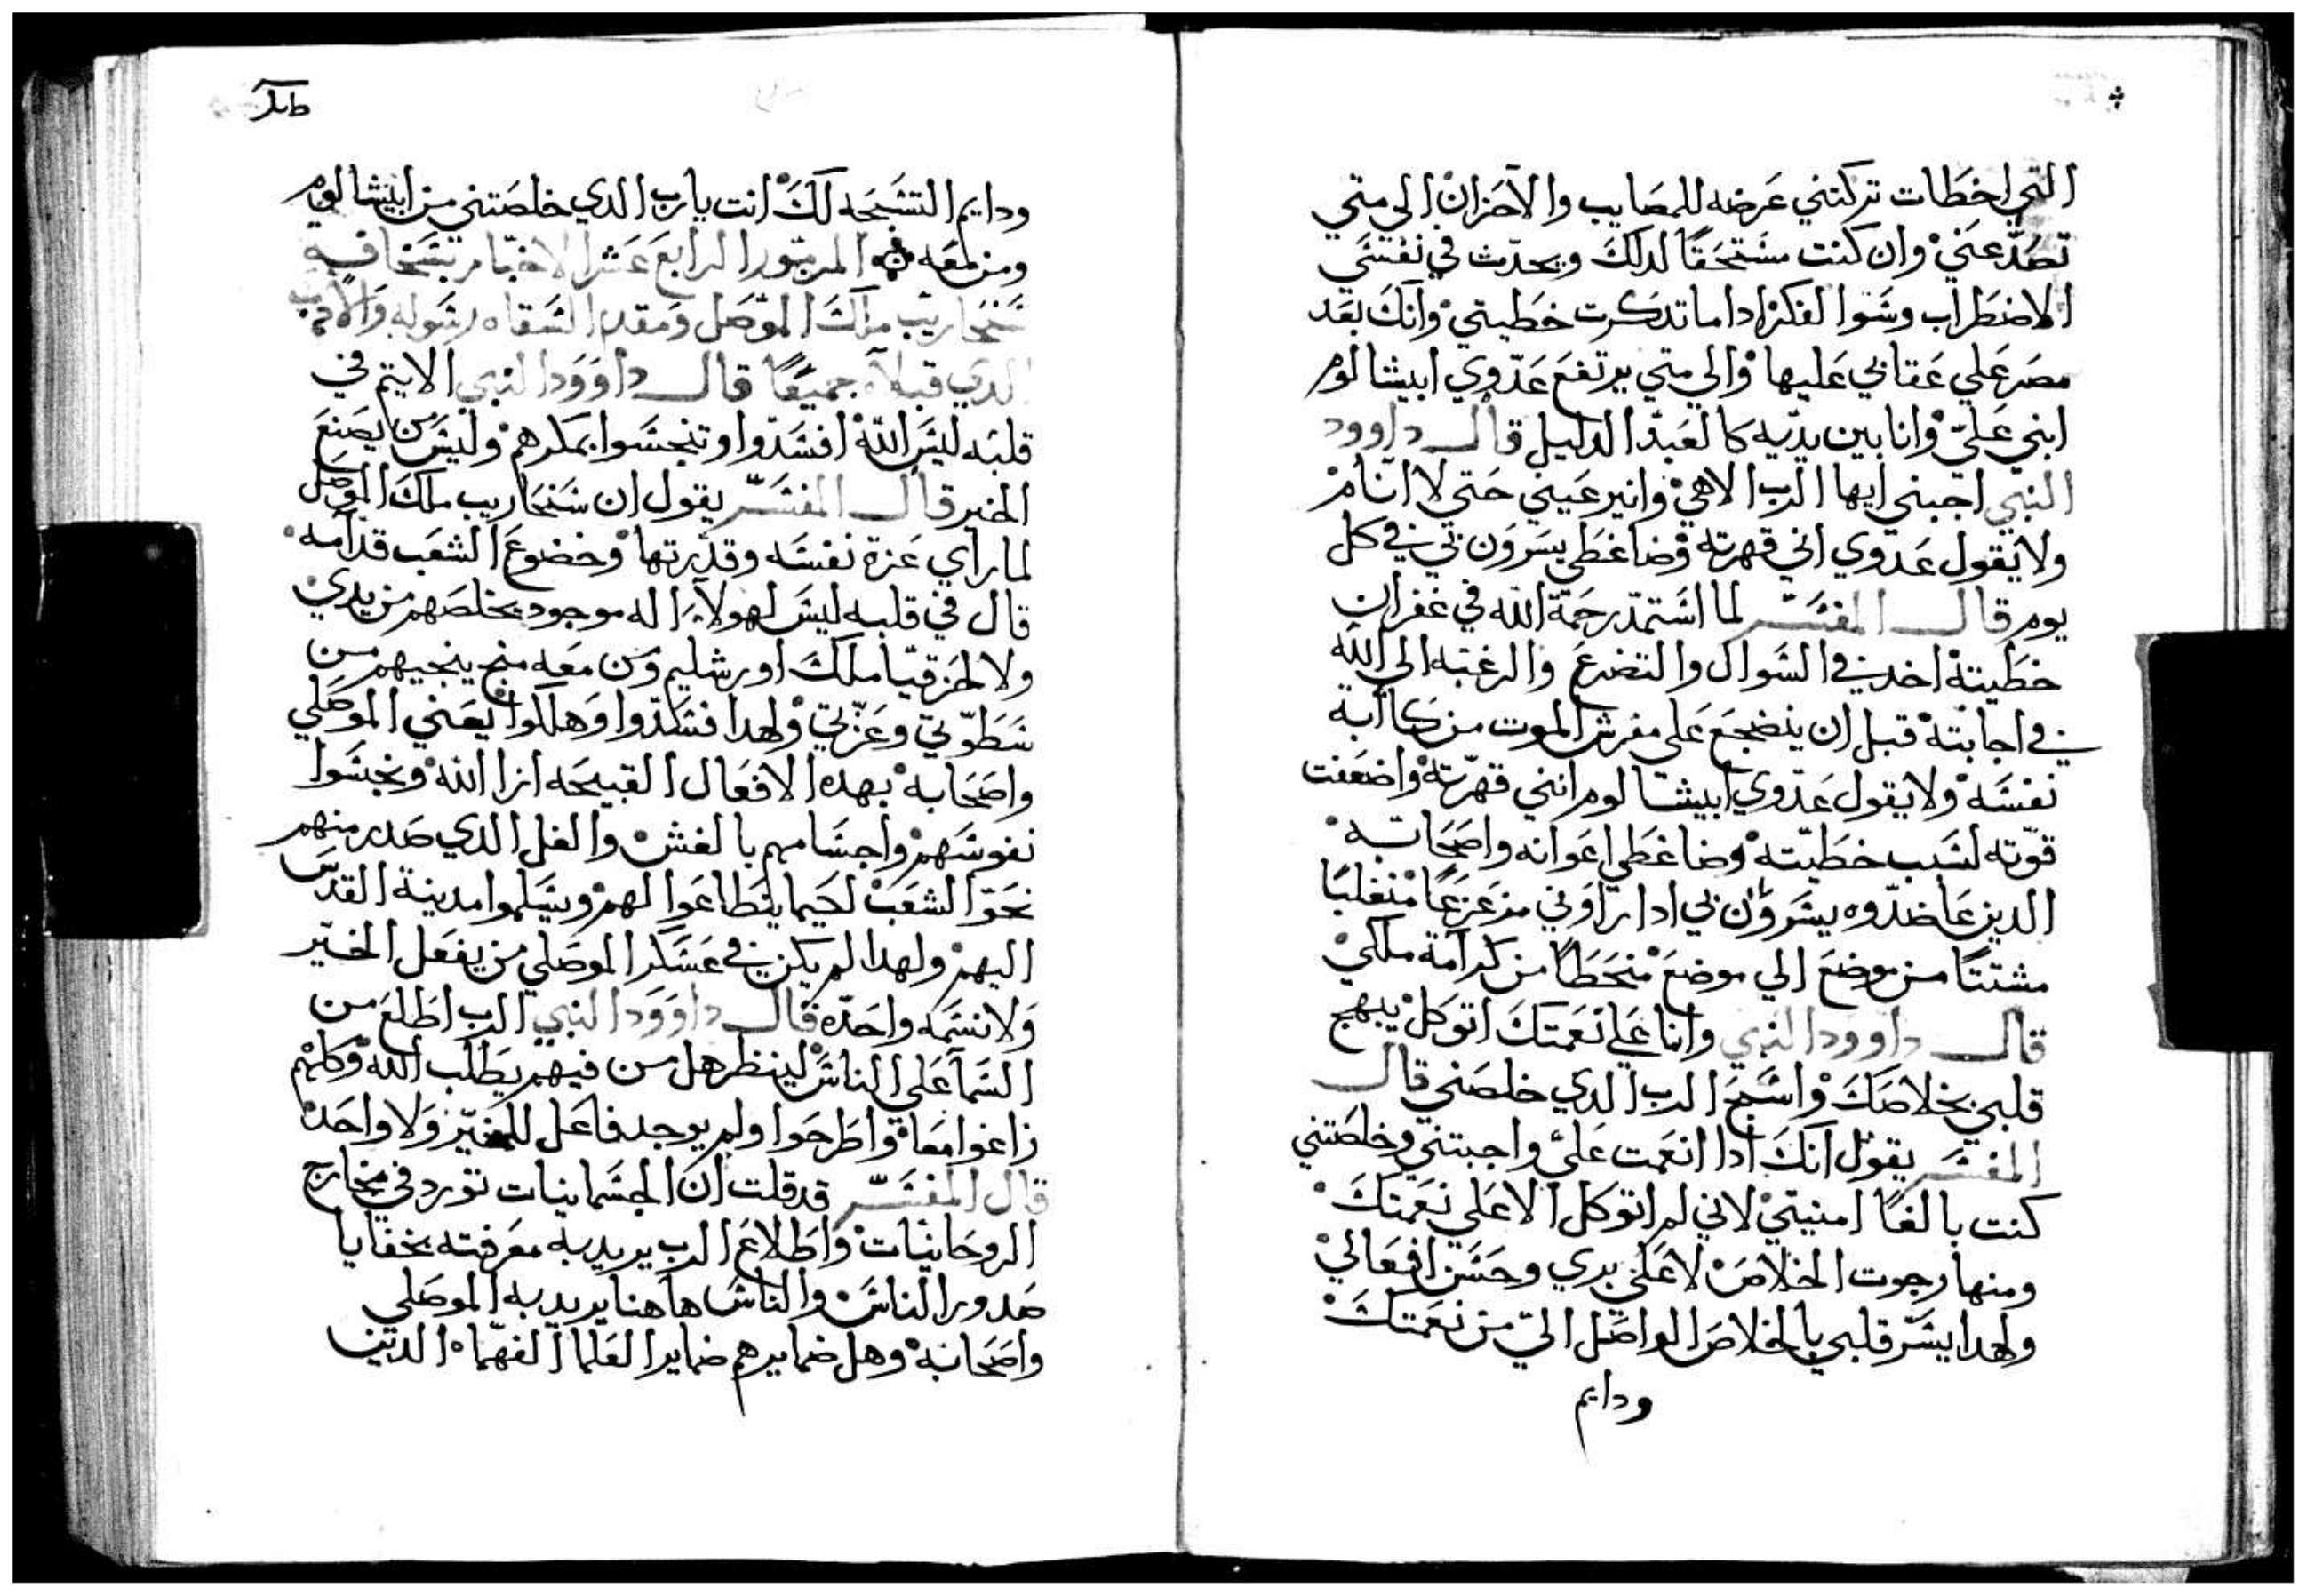 التي اخطات تركتني عرضه للمصايب والاحزان الى متي
تصد عني وان كنت مستحقا لدلك ويحدث في نفسي
الاضطراب وسوا الفكر ادا ما تدكرت خطيتي وانك بعد
مصر علي عقابي عليها والي متي يرتفع عدوي ابيشالوم
ابني علي وانا بين يديه كالعبد الدليل قال داوود
النبي اجبني ايها الرب الاهي وانير عيني حتي لا انام
ولا يقول عدوي اني قهرته وضاغطي يسرون بي في كل
يوم قال المفسر لما استمد رحمة الله في غفران
خطيته اخد في السوال والتضرع والرغبه الي الله
في اجابته قبل ان ينضجع علي مفرش الموت من كاابة
نفسه ولا يقول عدوي ابيشالوم انني قهرته واضعفت
قوته لسبب خطيته وضاغطي اعوانه واصحابه
الدين عاضدوه يسرون بي ادا راوني مزعزعا منغلبا
مشتتا من موضع الي موضع منحطا من كرامة ملكي
قال داوود النبي وانا علي نعمتك اتوكل يبهج
قلبي بخلاصك واسبح الرب الدي خلصني قال
المفسر يقول انك ادا انعمت علي واجبتني وخلصتني
كنت بالغا امنيتي لاني لم اتوكل الا علي نعمتك
ومنها رجوت الخلاص لا علي بري وحسن افعالي
ولهدا يسر قلبي بالخلاص الواصل الي من نعمتك
ودايم
ودايم التسبحه لك انت يارب الدي خلصتني من ابيشالوم
ومن معه المزمور الرابع عشر الاخبار بتسخافه
سنحاريب ملك الموصل ومقدم السقاه رسوله والادب
الدي قبلاه جميعا قال داوود النبي الايتم في
قلبه ليس الله افسدوا وتنجسوا بمكرهم وليس من يصنع
الخير قال المفسر يقول ان سنحاريب ملك الموصل
لما راي عزة نفسه وقدرتها وخضوع الشعب قدامه
قال في قلبه ليس لهولاء اله موجود يخلصهم من يدي
ولا لحزقيا ملك اورشليم ومن معه منج ينجيهم من
سطوتي وعزتي ولهدا فسدوا وهلكوا يعني الموصلي
واصحابه بهده الافعال القبيحه ازا الله ونجسوا
نفوسهم واجسامهم بالغش والغل الدي صدر منهم
نحو الشعب لحيما يتطاعوا لهم ويسلموا مدينة القدس
اليهم ولهدا لم يكن في عسكر الموصلي من يفعل الخير
ولا نسمه واحده قال داوود النبي الرب اطلع من
السما علي الناس لينظر هل من فيهم يطلب الله وكلهم
زاغوا معا واطرحوا ولم يوجد فاعل للخير ولا واحد
قال المفسر قد قلت ان الجسمانيات تورد في مخارج
الروحانيات واطلاع الرب يريد به معرفته بخفايا
صدور الناس والناس هاهنا يريد به الموصلي
واصحابه وهل ضمايرهم ضماير العلما الفهماه الدين